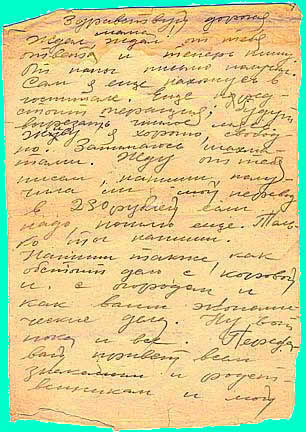 Здравствуй дорогая
мама
Ждал, ждал от тебя
ответа и теперь пишу.
От папы письмо получил.
Сам я еще нахожусь в
госпитале. Еще пред-
стоит операция, будут
вырезать
Живу я хорошо, свобод-
но. Занимаюсь шахма-
тами. Жду от тебя
писем, напиши, полу-
чила ли мой перевод
в 230 рублей если
надо пошлю еще. Толь-
ко ты напиши.
Напиши также, как
обстоит дело с коровой
и с огородом и
как ваши экономи-
ческие дела. Ну вот
пока и все. Переда-
вай привет всем
знакомым и родст-
венникам и